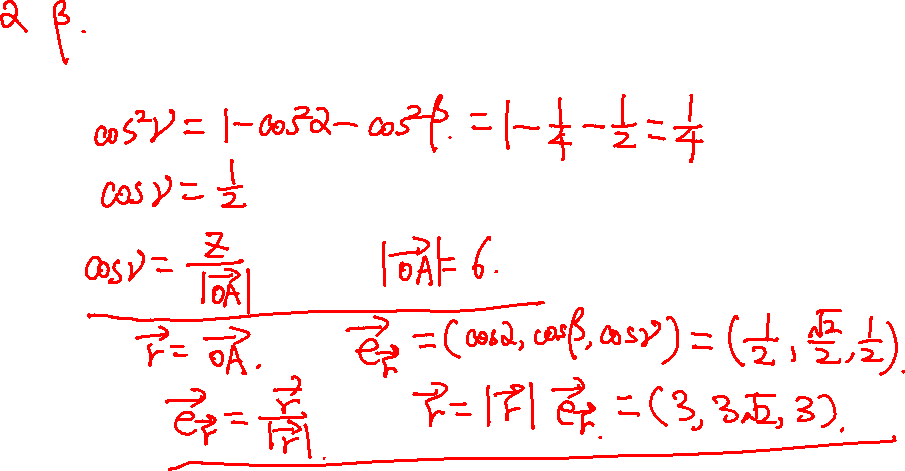 α β.
cos²γ = 1 - cos²α - cos²β. = 1 - 1/4 - 1/2 = 1/4
cosγ = 1/2
cosγ = z/|\vec{OA}|   |\vec{OA}| = 6.
\vec{r} = \vec{OA}.   \vec{e}_{\vec{r}} = (cosα, cosβ, cosγ) = (1/2, √2/2, 1/2).
\vec{e}_{\vec{r}} = \vec{r}/|\vec{r}|.   \vec{r} = |\vec{r}| \vec{e}_{\vec{r}}. = (3, 3√2, 3).